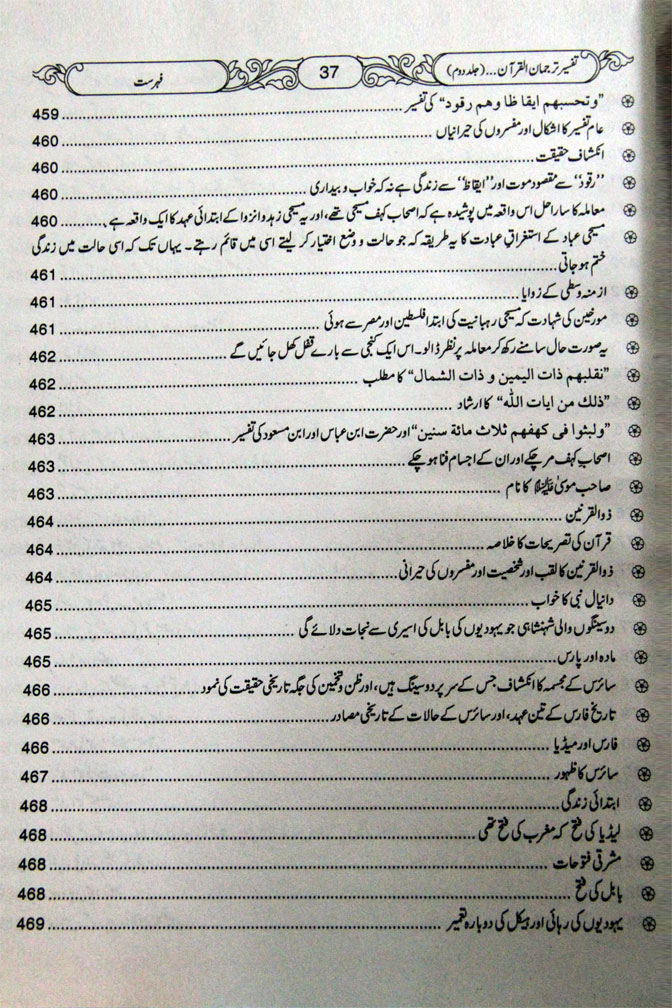 تفسیر ترجمان القرآن... (جلد دوم) 37 فہرست
”وتحسبهم ايقاظا وهم رقود“ کی تفسیر ... 459
عام تفسیر کا اشکال اور مفسروں کی حیرانیاں ... 460
انکشاف حقیقت ... 460
”رقود“ سے مقصود موت اور ”ایقاظ“ سے زندگی ہے نہ کہ خواب و بیداری ... 460
معاملہ کا سارا حل اس واقعہ میں پوشیدہ ہے کہ اصحاب کہف مسیحی تھے، اور یہ مسیحی زہد و انزوا کے ابتدائی عہد کا ایک واقعہ ہے ... 460
مسیحی عباد کے استغراق عبادت کا یہ طریقہ کہ جو حالت و وضع اختیار کر لیتے اسی میں قائم رہتے۔ یہاں تک کہ اسی حالت میں زندگی
ختم ہو جاتی ... 461
ازمنہ وسطیٰ کے زوایا ... 461
مورخین کی شہادت کہ مسیحی رہبانیت کی ابتدا فلسطین اور مصر سے ہوئی ... 461
یہ صورت حال سامنے رکھ کر معاملہ پر نظر ڈالو۔ اس ایک کنجی سے سارے قفل کھل جائیں گے ... 462
”نقلبهم ذات اليمين و ذات الشمال“ کا مطلب ... 462
”ذلك من ايات الله“ کا ارشاد ... 462
”ولبثوا فى كهفهم ثلاث مائة سنين“ اور حضرت ابن عباس اور ابن مسعود کی تفسیر ... 463
اصحاب کہف مر چکے اور ان کے اجسام فنا ہو چکے ... 463
صاحب موسیٰ ﷺ کا نام ... 463
ذوالقرنین ... 464
قرآن کی تصریحات کا خلاصہ ... 464
ذوالقرنین کا لقب اور شخصیت اور مفسروں کی حیرانی ... 464
دانیال نبی کا خواب ... 465
دو سینگوں والی شہنشاہی جو یہودیوں کی بابل کی اسیری سے نجات دلائے گی ... 465
مادہ اور پارس ... 465
سائرس کے مجسمہ کا انکشاف جس کے سر پر دو سینگ ہیں، اور ظن و تخمین کی جگہ تاریخی حقیقت کی نمود ... 466
تاریخ فارس کے تین عہد، اور سائرس کے حالات کے تاریخی مصادر ... 466
فارس اور میڈیا ... 466
سائرس کا ظہور ... 467
ابتدائی زندگی ... 468
لیڈیا کی فتح کہ مغرب کی فتح تھی ... 468
مشرقی فتوحات ... 468
بابل کی فتح ... 468
یہودیوں کی رہائی اور ہیکل کی دوبارہ تعمیر ... 469